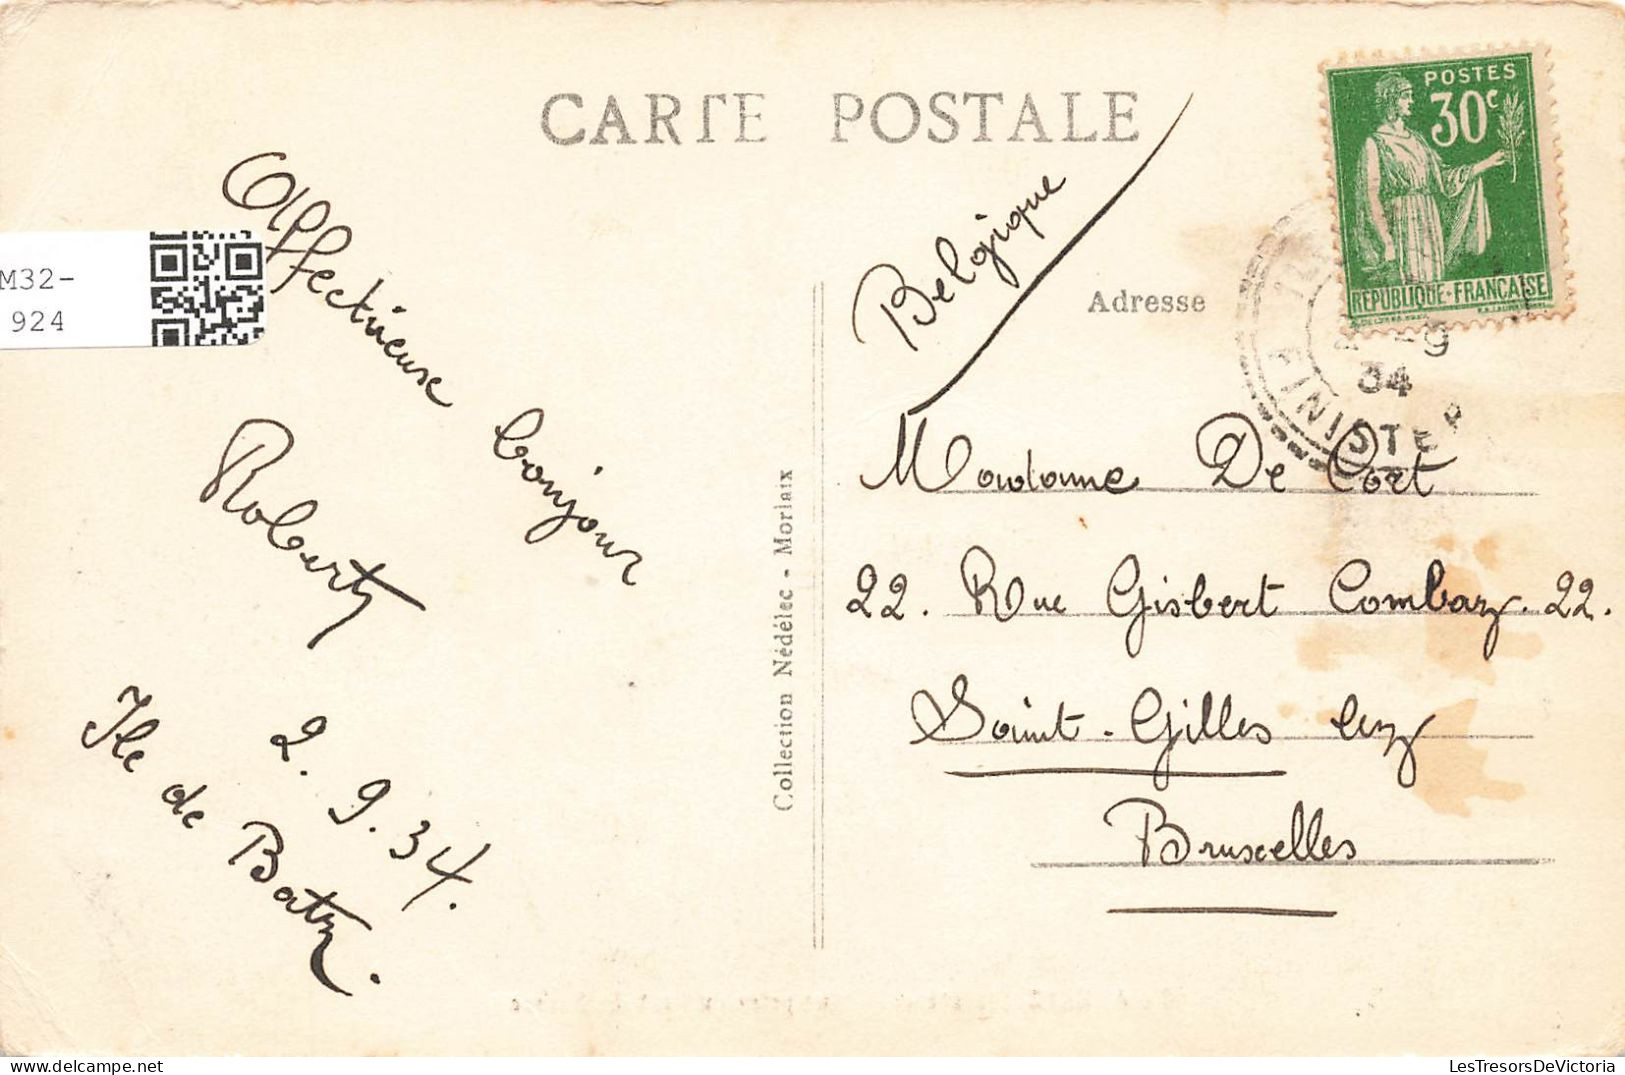 CARTE POSTALE
POSTES
30c
REPUBLIQUE-FRANÇAISE
M32-
924
Affectueuse bonjour
Robert
2.9.34.
Ile de Batz.
Collection Nédélec - Morlaix
Belgique
Adresse
9
34
FINISTER
Madame De Cort
22. Rue Gisbert Combaz. 22.
Saint-Gilles lez
Bruxelles
LesTresorsDeVictoria